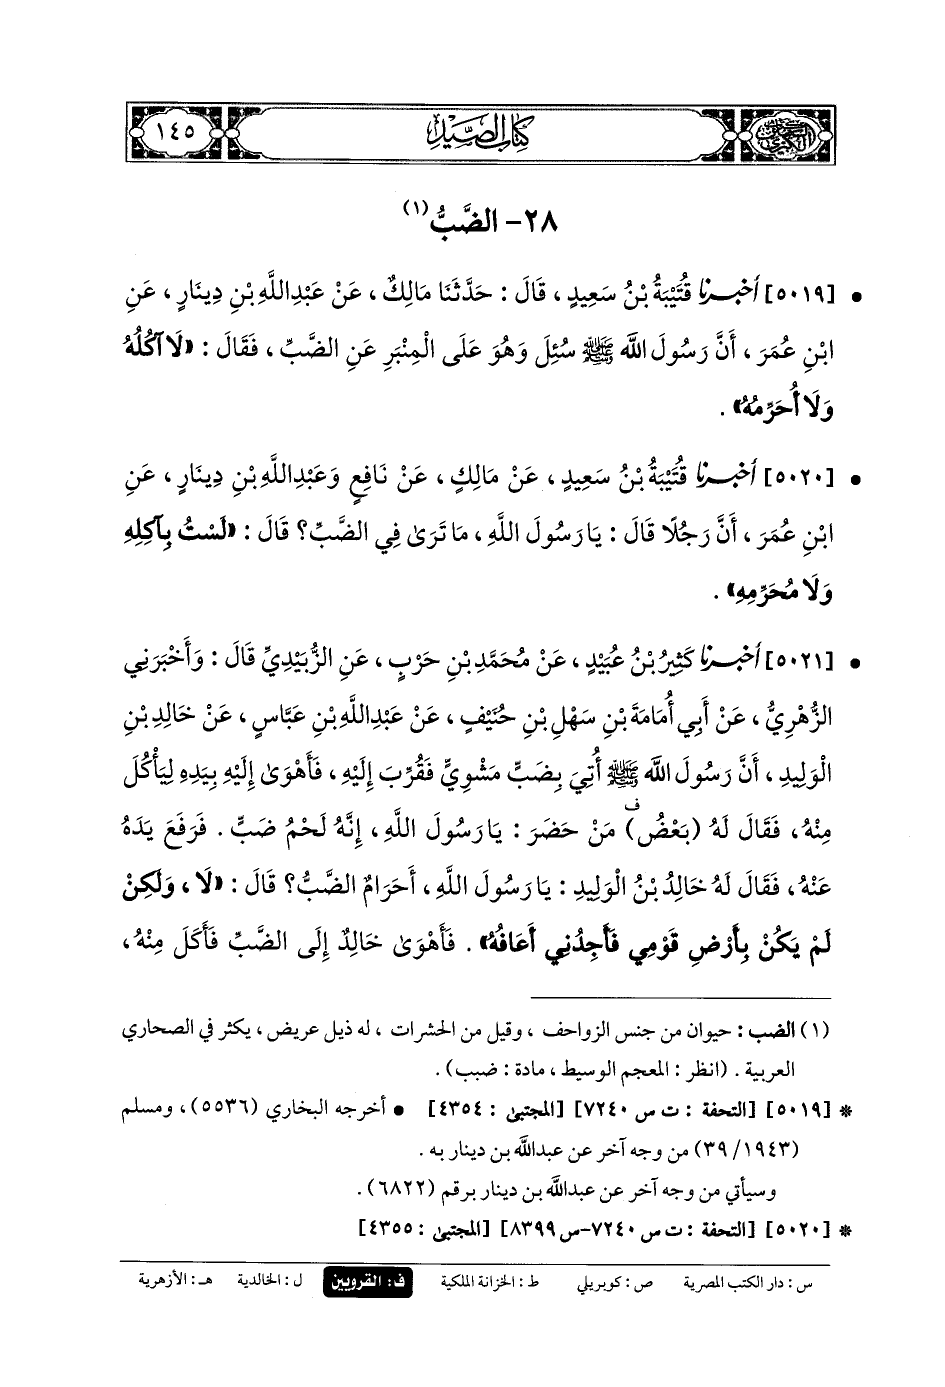 ١٤٥
كتاب الصيد
٢٨- الضَّبُّ (١)
• [٥٠١٩] أخبرنا قُتَيْبَةُ بْنُ سَعِيدٍ ، قَالَ : حَدَّثَنَا مَالِكٌ ، عَنْ عَبْدِاللَّهِ بْنِ دِينَارٍ ، عَنِ
ابْنِ عُمَرَ ، أَنَّ رَسُولَ اللَّه ﷺ سُئِلَ وَهُوَ عَلَى الْمِنْبَرِ عَنِ الضَّبِّ ، فَقَالَ : «لَا آكُلُهُ
وَلَا أُحَرِّمُهُ» .
• [٥٠٢٠] أخبرنا قُتَيْبَةُ بْنُ سَعِيدٍ ، عَنْ مَالِكٍ ، عَنْ نَافِعٍ وَعَبْدِاللَّهِ بْنِ دِينَارٍ ، عَنِ
ابْنِ عُمَرَ ، أَنَّ رَجُلًا قَالَ : يَا رَسُولَ اللَّهِ ، مَا تَرَىٰ فِي الضَّبِّ؟ قَالَ : «لَسْتُ بِآكِلِهِ
وَلَا مُحَرِّمِهِ» .
• [٥٠٢١] أخبرنا كَثِيرُ بْنُ عُبَيْدٍ ، عَنْ مُحَمَّدِ بْنِ حَرْبٍ ، عَنِ الزُّبَيْدِيِّ قَالَ : وَأَخْبَرَنِي
الزُّهْرِيُّ ، عَنْ أَبِي أُمَامَةَ بْنِ سَهْلِ بْنِ حُنَيْفٍ ، عَنْ عَبْدِاللَّهِ بْنِ عَبَّاسٍ ، عَنْ خَالِدِ بْنِ
الْوَلِيدِ ، أَنَّ رَسُولَ اللَّه ﷺ أُتِيَ بِضَبٍّ مَشْوِيٍّ فَقُرِّبَ إِلَيْهِ ، فَأَهْوَىٰ إِلَيْهِ بِيَدِهِ لِيَأْكُلَ
مِنْهُ ، فَقَالَ لَهُ (بَعْضُ)ف مَنْ حَضَرَ : يَا رَسُولَ اللَّهِ ، إِنَّهُ لَحْمُ ضَبٍّ . فَرَفَعَ يَدَهُ
عَنْهُ ، فَقَالَ لَهُ خَالِدُ بْنُ الْوَلِيدِ : يَا رَسُولَ اللَّهِ ، أَحَرَامٌ الضَّبُّ؟ قَالَ : «لَا ، وَلَكِنْ
لَمْ يَكُنْ بِأَرْضِ قَوْمِي فَأَجِدُنِي أَعَافُهُ» . فَأَهْوَىٰ خَالِدٌ إِلَى الضَّبِّ فَأَكَلَ مِنْهُ ،
(١) الضب : حيوان من جنس الزواحف ، وقيل من الحشرات ، له ذيل عريض ، يكثر في الصحاري
العربية . (انظر : المعجم الوسيط ، مادة : ضبب) .
* [٥٠١٩] [التحفة : ت س ٧٢٤٠] [المجتبىٰ : ٤٣٥٤] • أخرجه البخاري (٥٥٣٦) ، ومسلم
(١٩٤٣/ ٣٩) من وجه آخر عن عبداللَّه بن دينار به .
وسيأتي من وجه آخر عن عبداللَّه بن دينار برقم (٦٨٢٢) .
* [٥٠٢٠] [التحفة : ت س ٧٢٤٠-س ٨٣٩٩] [المجتبىٰ : ٤٣٥٥]
س : دار الكتب المصرية ص : كوبريلي ط : الخزانة الملكية ف : القرويين ل : الخالدية هـ : الأزهرية